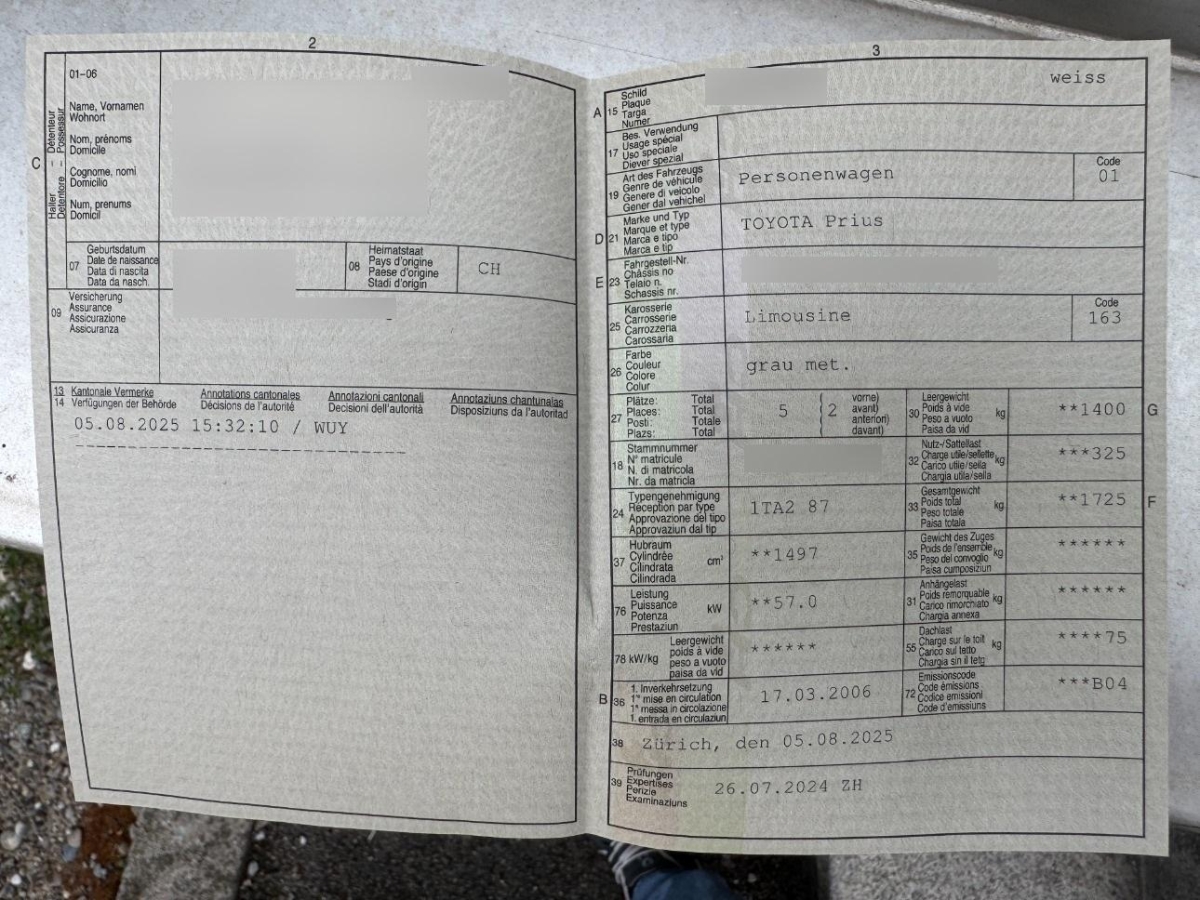 2
01-06
Name, Vornamen
Wohnort
Nom, prénoms
Domicile
Cognome, nomi
Domicilio
Num, prenums
Domicil
C
Halter – Détenteur
Detentore – Possessur
07
Geburtsdatum
Date de naissance
Data di nascita
Data da nasch.
08
Heimatstaat
Pays d'origine
Paese d'origine
Stadi d'origin
CH
09
Versicherung
Assurance
Assicurazione
Assicuranza
13 Kantonale Vermerke Annotations cantonales Annotazioni cantonali Annotaziuns chantunalas
14 Verfügungen der Behörde Décisions de l'autorité Decisioni dell'autorità Disposiziuns da l'autoritad
05.08.2025 15:32:10 / WUY
3
A 15
Schild
Plaque
Targa
Numer
weiss
17
Bes. Verwendung
Usage spécial
Uso speciale
Diever spezial
19
Art des Fahrzeugs
Genre de véhicule
Genere di veicolo
Gener dal vehichel
Personenwagen
Code
01
D 21
Marke und Typ
Marque et type
Marca e tipo
Marca e tip
TOYOTA Prius
E 23
Fahrgestell-Nr.
Châssis no
Telaio n.
Schassis nr.
25
Karosserie
Carrosserie
Carrozzeria
Carossaria
Limousine
Code
163
26
Farbe
Couleur
Colore
Colur
grau met.
27
Plätze: Total
Places: Total
Posti: Totale
Plazs: Total
5 ( 2
vorne)
avant)
anteriori)
davant)
30
Leergewicht
Poids à vide
Peso a vuoto
Paisa da vid
kg
**1400
G
18
Stammnummer
N° matricule
N. di matricola
Nr. da matricla
32
Nutz-/Sattellast
Charge utile/sellette
Carico utile/sella
Chargia utila/sella
kg
***325
24
Typengenehmigung
Réception par type
Approvazione del tipo
Approvaziun dal tip
1TA2 87
33
Gesamtgewicht
Poids total
Peso totale
Paisa totala
kg
**1725
F
37
Hubraum
Cylindrée
Cilindrata
Cilindrada
cm³
**1497
35
Gewicht des Zuges
Poids de l'ensemble
Peso del convoglio
Paisa cumposiziun
kg
******
76
Leistung
Puissance
Potenza
Prestaziun
kW
**57.0
31
Anhängelast
Poids remorquable
Carico rimorchiato
Chargia annexa
kg
******
78 kW/kg
Leergewicht
poids à vide
peso a vuoto
paisa da vid
******
55
Dachlast
Charge sur le toit
Carico sul tetto
Chargia sin il tetg
kg
****75
B 36
1. Inverkehrsetzung
1re mise en circulation
1a messa in circolazione
1. entrada en circulaziun
17.03.2006
72
Emissionscode
Code émissions
Codice emissioni
Code d'emissiuns
***B04
38 Zürich, den 05.08.2025
39
Prüfungen
Expertises
Perizie
Examinaziuns
26.07.2024 ZH